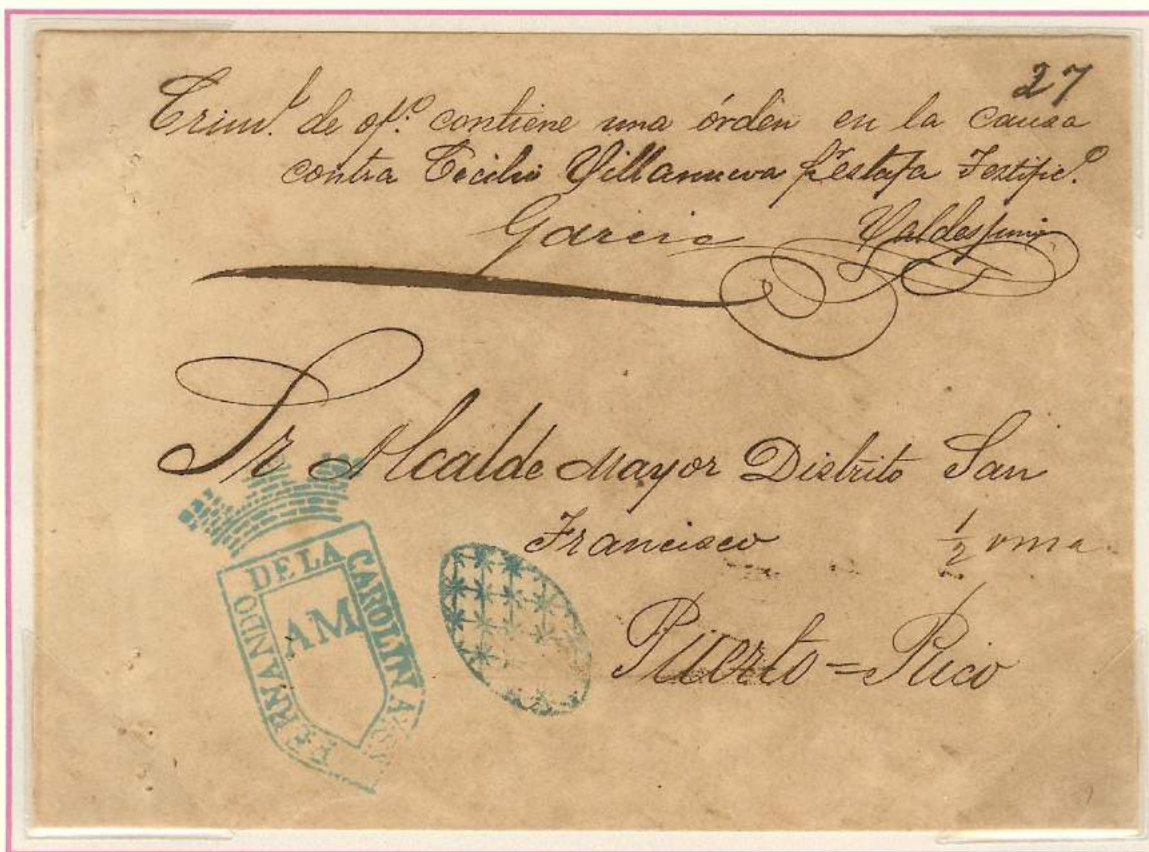 27
Crim.l de of.o contiene una órden en la causa
contra Cecilio Villanueva p.r estafa Testific.o
Garcia Valdespino
Sr Alcalde Mayor Distrito San
Francisco ½ onza
Puerto=Rico
FERNANDO DE LA CAROLINA
AM